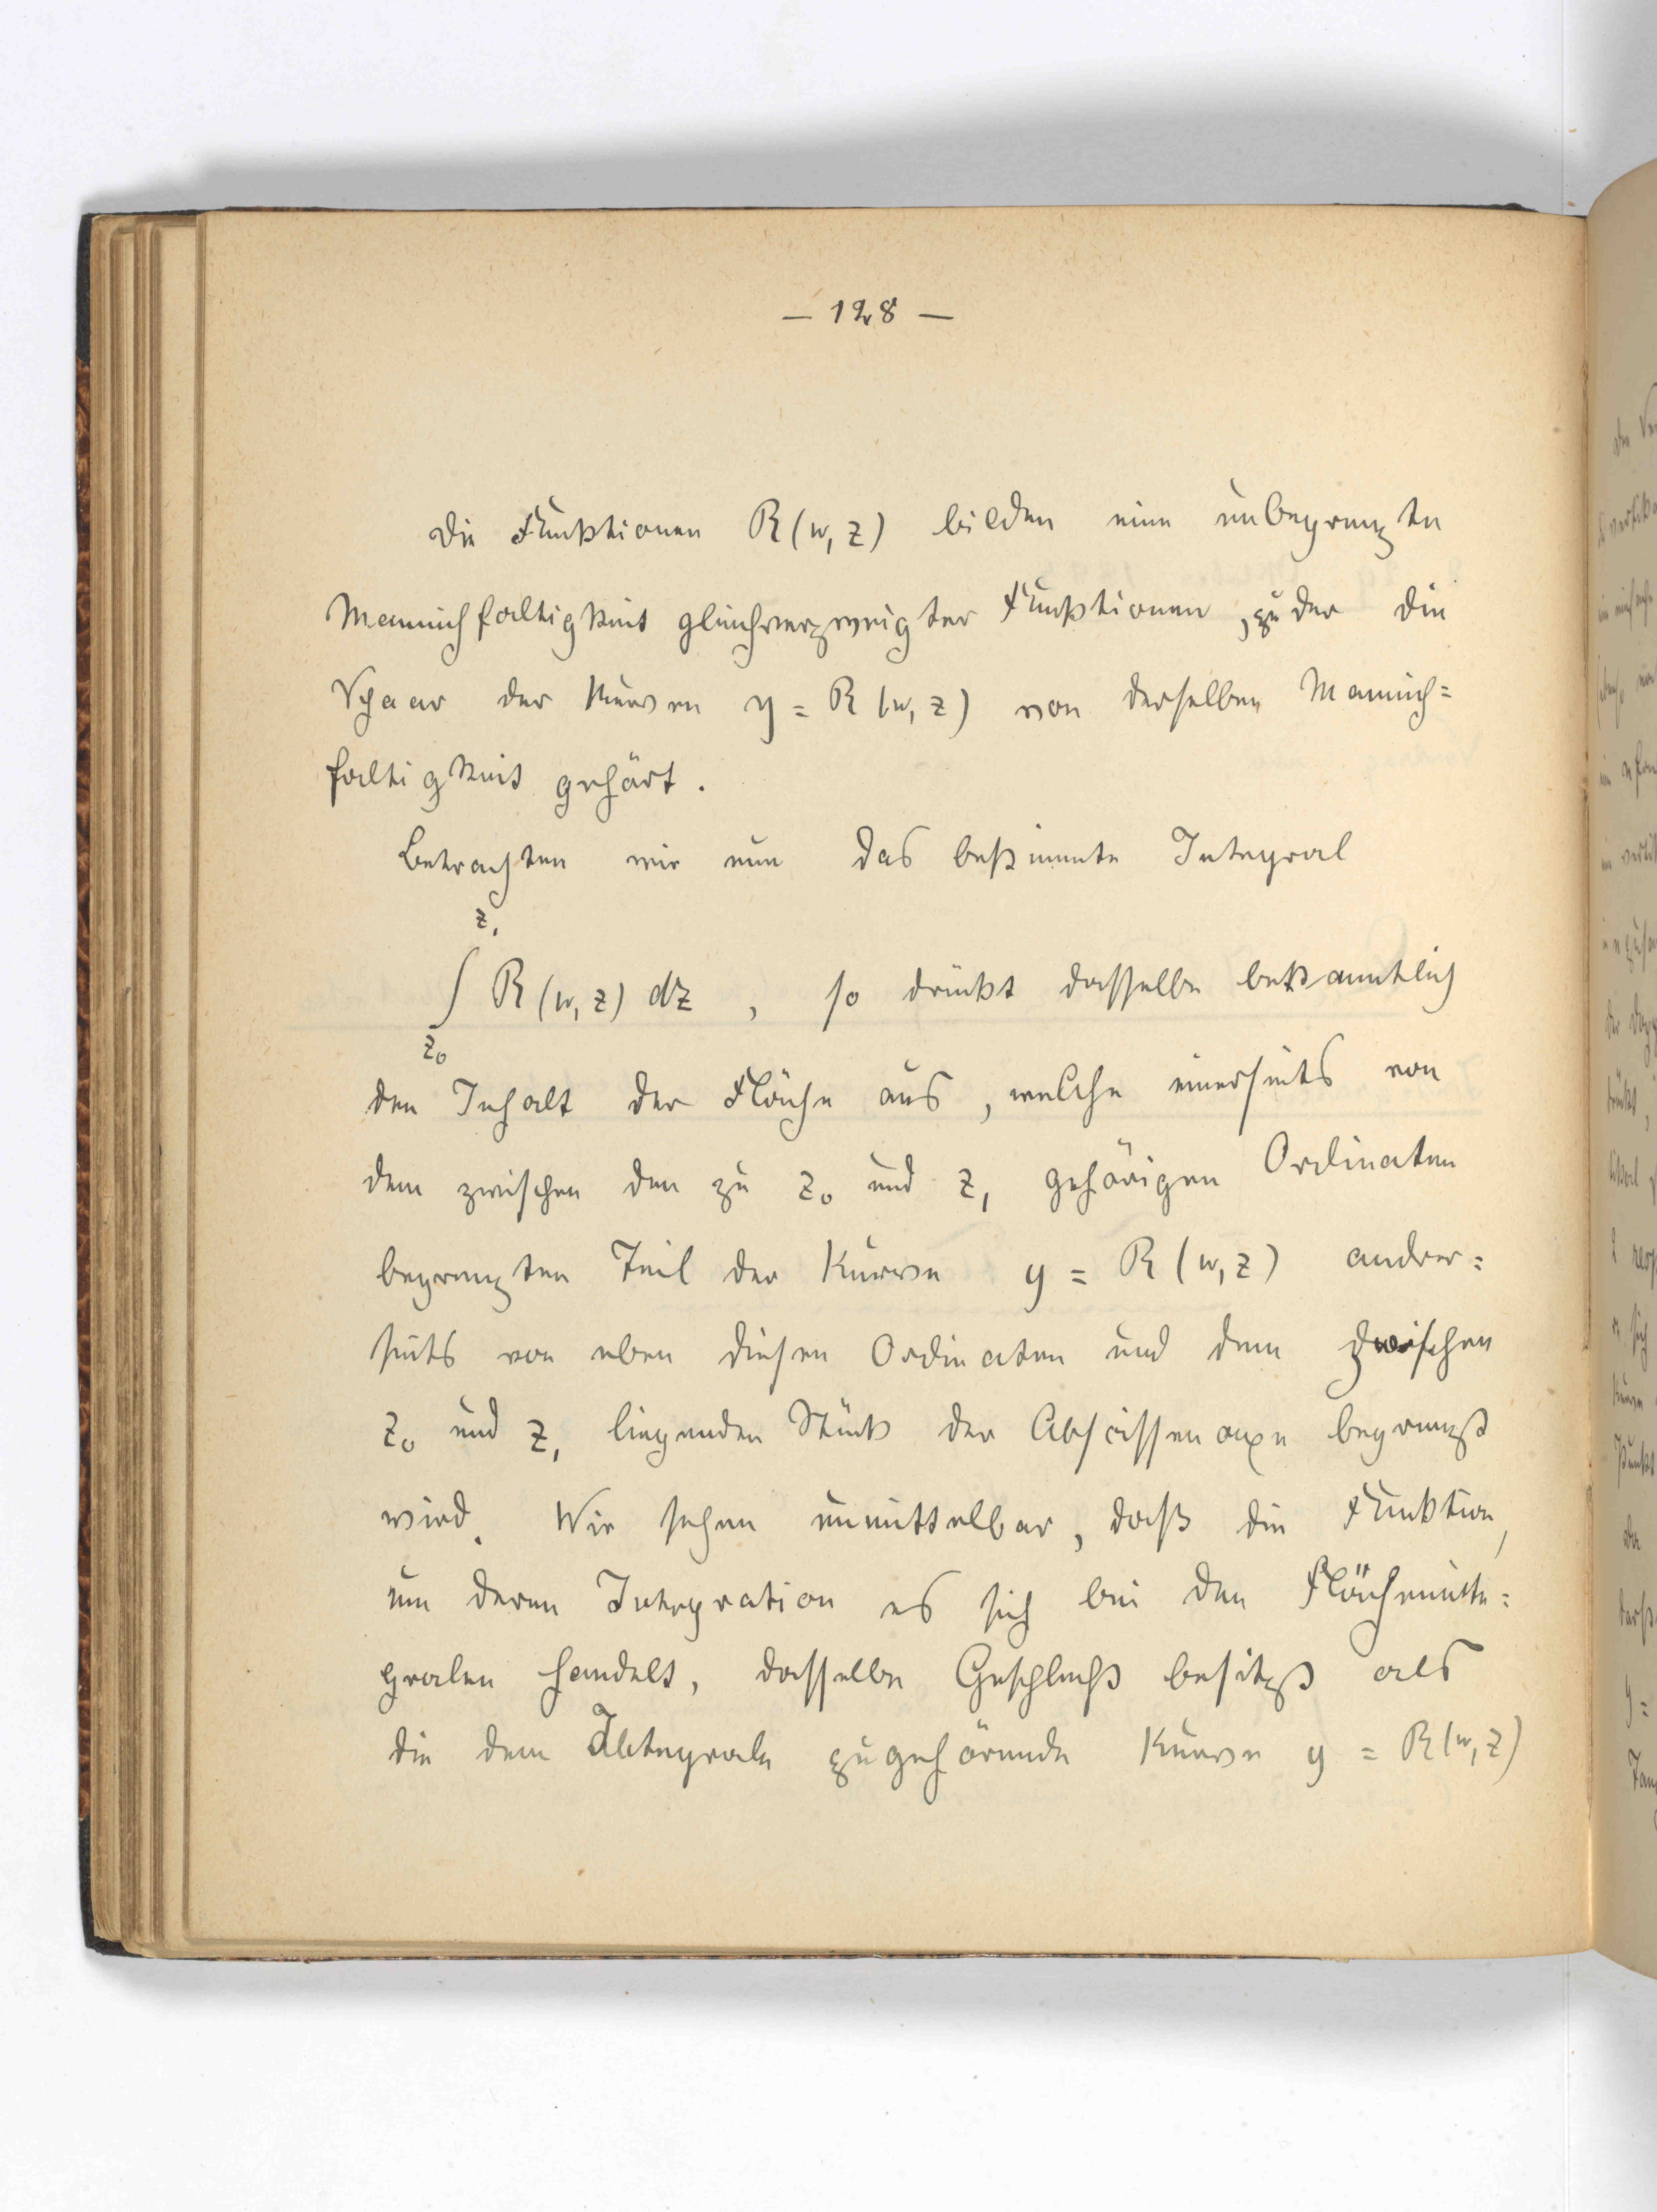 — 128 —
Die Funktionen R(w, z) bilden eine unbegrenzte
Mannichfaltigkeit gleichverzweigter Funktionen, zu der die
Schaar der Kurven y = R(w, z) von derselben Mannich=
faltigkeit gehört.
Betrachten wir nun das bestimmte Integral
∫_{z₀}^{z₁} R(w, z) dz , so drückt dasselbe bekanntlich
den Inhalt der Fläche aus, welche einerseits von
dem zwischen den zu z₀ und z₁ gehörigen Ordinaten
begrenzten Teil der Kurve y = R(w, z) andrer=
seits von eben diesen Ordinaten und dem zwischen
z₀ und z₁ liegenden Stück der Abscissenaxe begrenzt
wird. Wir sehen unmittelbar, daß die Funktion,
um deren Integration es sich bei den Flächeninte=
gralen handelt, dasselbe Geschlecht besitzt als
die dem Integrale zugehörende Kurve y = R(w, z)